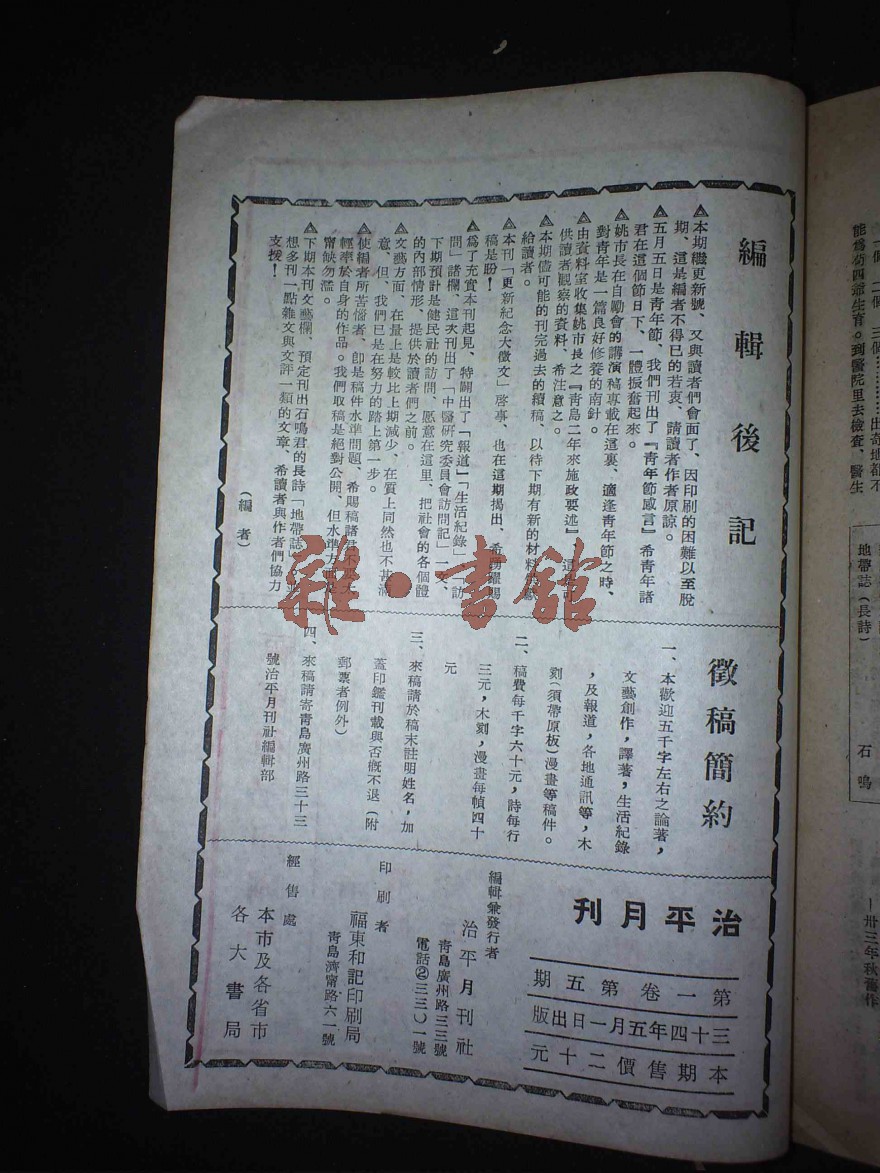 編輯後記
▲本期繼更新號、又與讀者們會面了、因印刷的困難以至脫
期、這是編者不得已的苦衷、請讀者作者原諒。
▲五月五日是青年節、我們刊出了『青年節感言』希青年諸
君在這個節日下、一體振奮起來。
▲姚市長在自勵會的講演稿專載在這裏、適逢青年節之時、
對青年是一篇良好修養的南針。
▲由資料室收集姚市長之『青島二年來施政要述』這是可
供讀者觀察的資料、希注意之。
▲本期儘可能的刊完過去的續稿、以待下期有新的材料
給讀者。
▲本刊「更新紀念大徵文」啓事、也在這期揭出、希踴躍賜
稿是盼!
▲爲了充實本刊起見、特闢出了「報道」「生活紀錄」「訪
問」諸欄、這次刊出了「中醫研究委員會訪問記」一文、
下期預計是健民社的訪問、愿意在這里、把社會的各個體
的內部情形、提供於讀者們之前。
▲文藝方面、在量上是較比上期減少、在質上同然也不甚滿
意、但、我們已是在努力的路上第一步。
▲使編者所苦惱者、卽是稿件水準問題、希賜稿諸君不
輕率於自身的作品。我們取稿是絕對公開、但水準方面是
甯缺勿濫。
▲下期本刊文藝欄、預定刊出石鳴君的長詩「地帶誌」。並
想多刊一點雜文與文評一類的文章、希讀者與作者們協力
支援!
(編者)
徵稿簡約
一、本歡迎五千字左右之論著,
文藝創作,譯著,生活紀錄
,及報道,各地通訊等,木
刻(須帶原板)漫畫等稿件。
二、稿費每千字六十元,詩每行
三元,木刻,漫畫每幀四十
元
三、來稿請於稿末註明姓名,加
蓋印鑑刊載與否概不退(附
郵票者例外)
四、來稿請寄青島廣州路三十三
號治平月刊社編輯部
治平月刊
第一卷第五期
三十四年五月一日出版
本期售價二十元
編輯兼發行者
治平月刊社
青島廣州路三三號
電話②三三〇一號
印刷者
福東和記印刷局
青島濟甯路六一號
經售處
本市及各省市
各大書局
雜·書館
一個、二個、三個…………出奇地都不
能爲菊四爺生育。到醫院里去檢查、醫生
地帶誌(長詩)
石鳴
—卅三年秋舊作